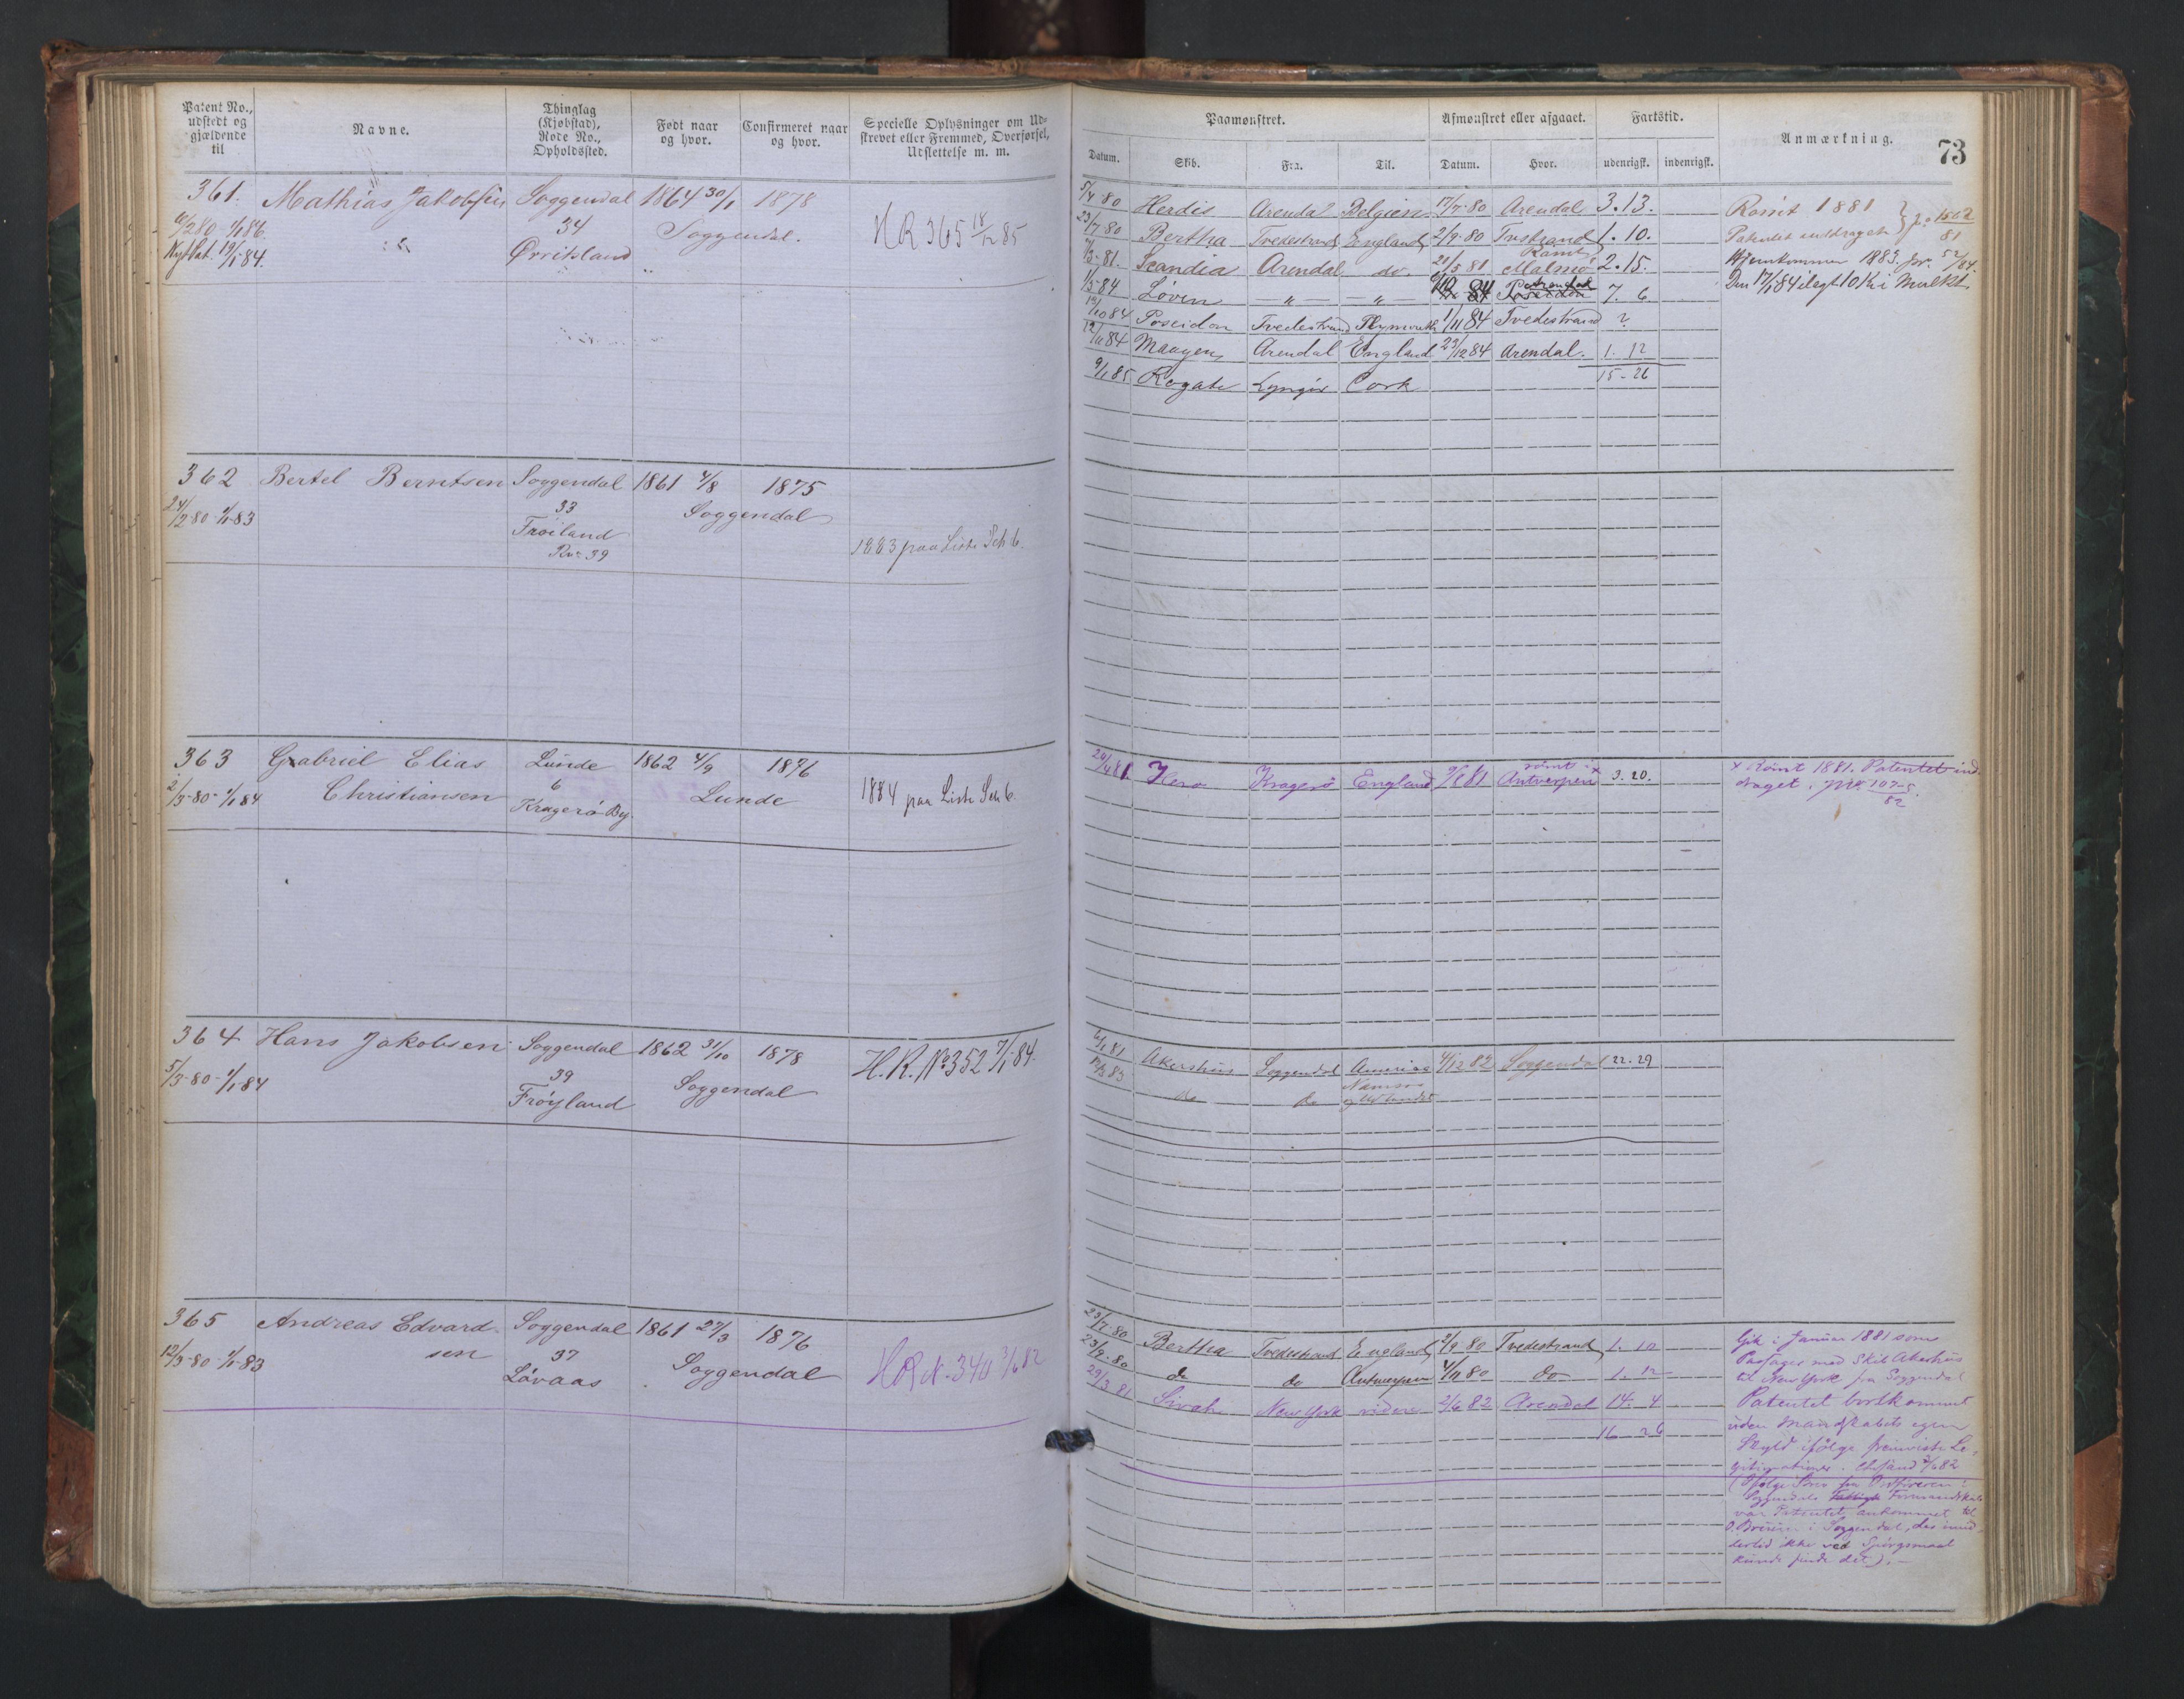 Patent No., udstedt og gjældende til
Navne.
Thinglag (Kjøbstad), Rode No., Opholdssted.
Født naar og hvor.
Confirmeret naar og hvor.
Specielle Oplysninger om Udstrevet eller Fremmed, Overførsel, Udslettelse m. m.
361. Mathias Jakobsen Soggendal 1864 30/1 1878
34 Soggendal.
Nyt Pat. 19/1 84. Ørritsland
H R 365 18/12 85
362 Bertel Berntsen Soggendal 1861 4/8 1875
24/2-80-1/1-83 33 Soggendal
Frøiland
Rno 39
1883 paa Liste Sch 6.
363 Gabriel Elias Lunde 1862 4/9 1876
2/3-80-1/1 84 Christiansen 6 Lunde
Kragerö By.
1884 paa Liste Sch 6.
364 Hans Jakobsen Soggendal 1862 31/10 1878
5/3-80-1/1 84 39 Soggendal
Frøyland
H. R. No 352 7/1-84.
365 Andreas Edvard- Soggendal 1861 27/3 1876
12/3-80-1/1-83 sen 37 Soggendal
Løvaas
H R N. 340 3/6 82
73
Paamønstret.
Afmønstret eller afgaaet.
Fartstid.
Anmærkning.
Datum. Skib. Fra. Til. Datum. Hvor. udenrigsk. indenrigsk.
5/4-80 Herdis Arendal Belgien 17/7-80 Arendal 3.13. Rømt 1881
23/7-80 Bertha Tvedestrand England 2/9-80 Tvestrand 1.10. Patentet inddraget Jo 1562/81
7/3-81. Scandia Arendal do 21/5 81 Rømt Malmö 2.15. Hjemkommen 1883. Jnr. 52/84.
1/3-84 Løven — " — — " — 84 Arendal 7. 6 Den 17/1 84 ilagt 10 Kr i Mulkt.
19/10 84 Poseidon Tvedestrand Plymouth 1/11 84 Tvedestrand ?
12/11 84 Maagen Arendal England 23/12 84 Arendal. 1. 12
9/1 85 Rogate Lyngör Cork 15-26
24/4 81. Hero Kragerö England 9/8 81 römt i Antwerpen x 3. 20. x Römt 1881. Patentet ind-
draget. 107-5/82
6/1 81 Akershus Soggendal America 4/12 82 Soggendal 22-29
83 do do Namsos
og Udlandet
23/7-80 Bertha Tvedestrand England 2/9-80 Tvedestrand 1. 10 Gik i Januar 1881 som
23/9-80 do do Antwerpen 4/11 80 do 1. 12 Passager med Skib Akershus
til New York fra Soggendal
29/3 81 Sivah New York videre 2/6 82 Arendal 14. 4 Patentet bortkommet
16 26 uden Mandskabets egen
Skyld ifølge
2/6 82
(Ifølge fra
Soggendals Formandskab
var Patentet ankommet til
i Soggendal, der imid-
lertid ikke ved Spørgsmaal
kunde finde det).